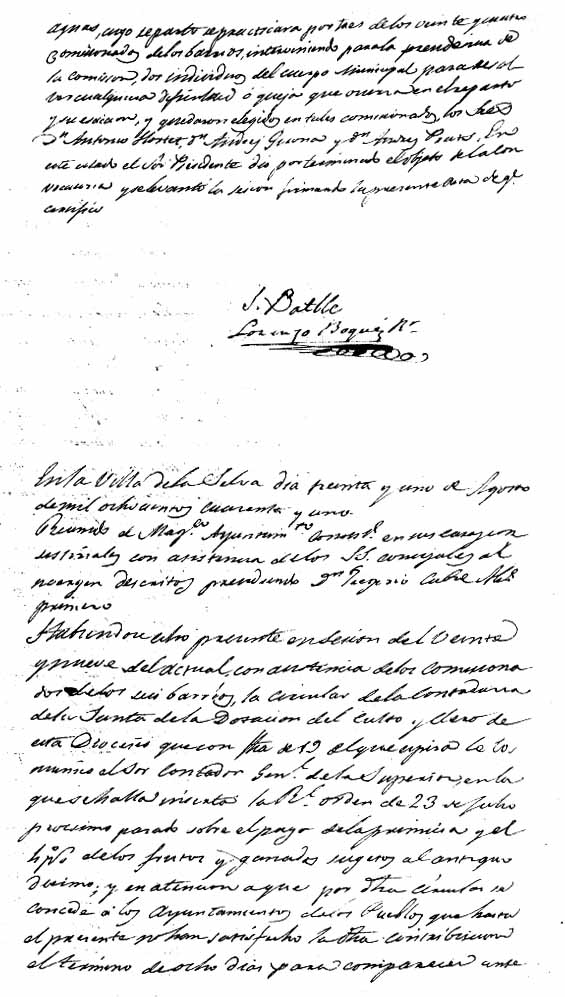 aguas, cuyo reparto se practicara por tres de los veinte y cuatro
comisionados de los barrios, interviniendo para la presidencia de
la comision, dos individuos del cuerpo Municipal para resol
ver cualquiera dificultad ó queja que ocurra en el reparto
y su esaccion, y quedaron elegidos en tales comisionados, los Sres
Dn Antonio Hortet, Dn Andrés Girona y Dn Prats. En
este estado el Sor Presidente dio por terminado el objeto de la con
vocatoria y se levantó la sesion firmando la presente acta de qe
certifico
J. Batlle
Lorenzo Boqué Rio
En la Villa de la Selva dia treinta y uno de Agosto
de mil ochocientos cuarenta y uno.
Reunido el Magco Ayuntamto Constl en sus casas con
sistoriales con asistencia de los SS. concejales al
margen descritos presidiendo Dn Alc
primero
Habiendose hecho presente en sesion del veinte
y nueve del actual, con asistencia de los comisiona
dos de los seis barrios, la circular de la Contaduria
de la Junta de la Dotacion del Culto y Clero de
esta Diocesis que con fha de 19 del que espira le co
munico el Sor Contador Genl de la Superior, en la
que se halla inserta la Rl orden de 23 de Julio
procsimo pasado sobre el pago de la primicia y el
de los frutos y ganados sugetos al antiguo
Diezmo; y en atencion a que por dha circular se
concede á los Ayuntamientos de los Pueblos que hasta
el presente no han satisfecho la dha contribucion
el término de ocho dias para comparecer ante